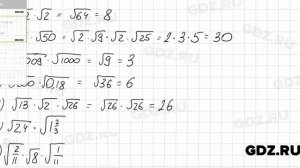 √2 = √64 = 8
√50 = √2 · √9 · √2 · √25 = 2 · 3 · 5 = 30
√1000 = √9 = 3
√0,18 = √36 = 6
√13 · √2 · √26 = √26 · √26 = 26
√2,4 · √1 2/3
√2/11 · √8 · √1/11
GDZ.RU